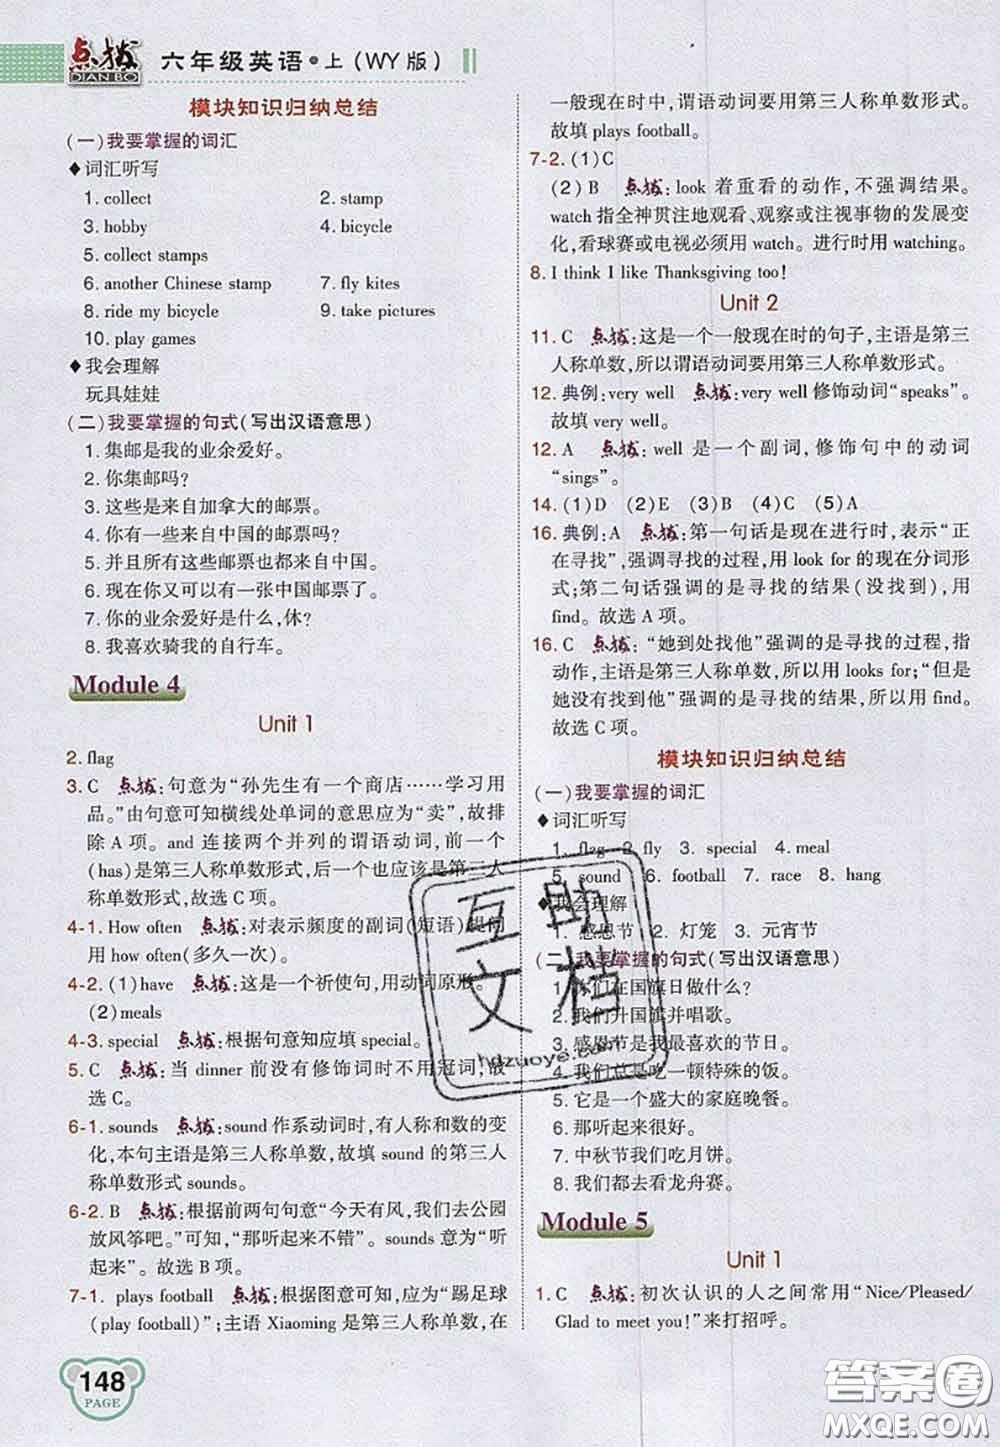 点拨
DIAN BO
六年级英语·上(WY版)
模块知识归纳总结
(一)我要掌握的词汇
◆词汇听写
1. collect 2. stamp
3. hobby 4. bicycle
5. collect stamps
6. another Chinese stamp 7. fly kites
8. ride my bicycle 9. take pictures
10. play games
◆我会理解
玩具娃娃
(二)我要掌握的句式(写出汉语意思)
1. 集邮是我的业余爱好。
2. 你集邮吗?
3. 这些是来自加拿大的邮票。
4. 你有一些来自中国的邮票吗?
5. 并且所有这些邮票也都来自中国。
6. 现在你又可以有一张中国邮票了。
7. 你的业余爱好是什么,休?
8. 我喜欢骑我的自行车。
Module 4
Unit 1
2. flag
3. C 点拨:句意为“孙先生有一个商店……学习用
品。”由句意可知横线处单词的意思应为“卖”,故排
除 A 项。and 连接两个并列的谓语动词,前一个
(has)是第三人称单数形式,后一个也应该是第三人
称单数形式,故选 C 项。
4-1. How often 点拨:对表示频度的副词(短语)提问
用 how often(多久一次)。
4-2. (1)have 点拨:这是一个祈使句,用动词原形。
(2)meals
4-3. special 点拨:根据句意知应填 special。
5. C 点拨:当 dinner 前没有修饰词时不用冠词,故
选 C。
6-1. sounds 点拨:sound 作系动词时,有人称和数的变
化,本句主语是第三人称单数,故填 sound 的第三人
称单数形式 sounds。
6-2. B 点拨:根据前两句句意“今天有风,我们去公园
放风筝吧。”可知,“那听起来不错”。sounds 意为“听
起来”。故选 B 项。
7-1. plays football 点拨:根据图意可知,应为“踢足球
(play football)”;主语 Xiaoming 是第三人称单数,在
一般现在时中,谓语动词要用第三人称单数形式。
故填 plays football。
7-2. (1)C
(2)B 点拨:look 着重看的动作,不强调结果。
watch 指全神贯注地观看、观察或注视事物的发展变
化,看球赛或电视必须用 watch。进行时用 watching。
8. I think I like Thanksgiving too!
Unit 2
11. C 点拨:这是一个一般现在时的句子,主语是第三
人称单数,所以谓语动词要用第三人称单数形式。
12. 典例:very well 点拨:very well 修饰动词“speaks”。
故填 very well。
12. A 点拨:well 是一个副词,修饰句中的动词
“sings”。
14. (1)D (2)E (3)B (4)C (5)A
16. 典例:A 点拨:第一句话是现在进行时,表示“正
在寻找”,强调寻找的过程,用 look for 的现在分词形
式;第二句话强调的是寻找的结果(没找到),用
find。故选 A 项。
16. C 点拨:“她到处找他”强调的是寻找的过程,指
动作,主语是第三人称单数,所以用 looks for;“但是
她没有找到他”强调的是寻找的结果,所以用 find。
故选 C 项。
模块知识归纳总结
(一)我要掌握的词汇
◆词汇听写
1. flag 2. fly 3. special 4. meal
5. sound 6. football 7. race 8. hang
◆我会理解
1. 感恩节 2. 灯笼 3. 元宵节
(二)我要掌握的句式(写出汉语意思)
1. 你们在国旗日做什么?
2. 我们升国旗并唱歌。
3. 感恩节是我最喜欢的节日。
4. 我们总是吃一顿特殊的饭。
5. 它是一个盛大的家庭晚餐。
6. 那听起来很好。
7. 中秋节我们吃月饼。
8. 我们都去看龙舟赛。
Module 5
Unit 1
1. C 点拨:初次认识的人之间常用“Nice/Pleased/
Glad to meet you!”来打招呼。
148
PAGE
互助
文档
hdzuoye.com
答案圈
MXQE.COM